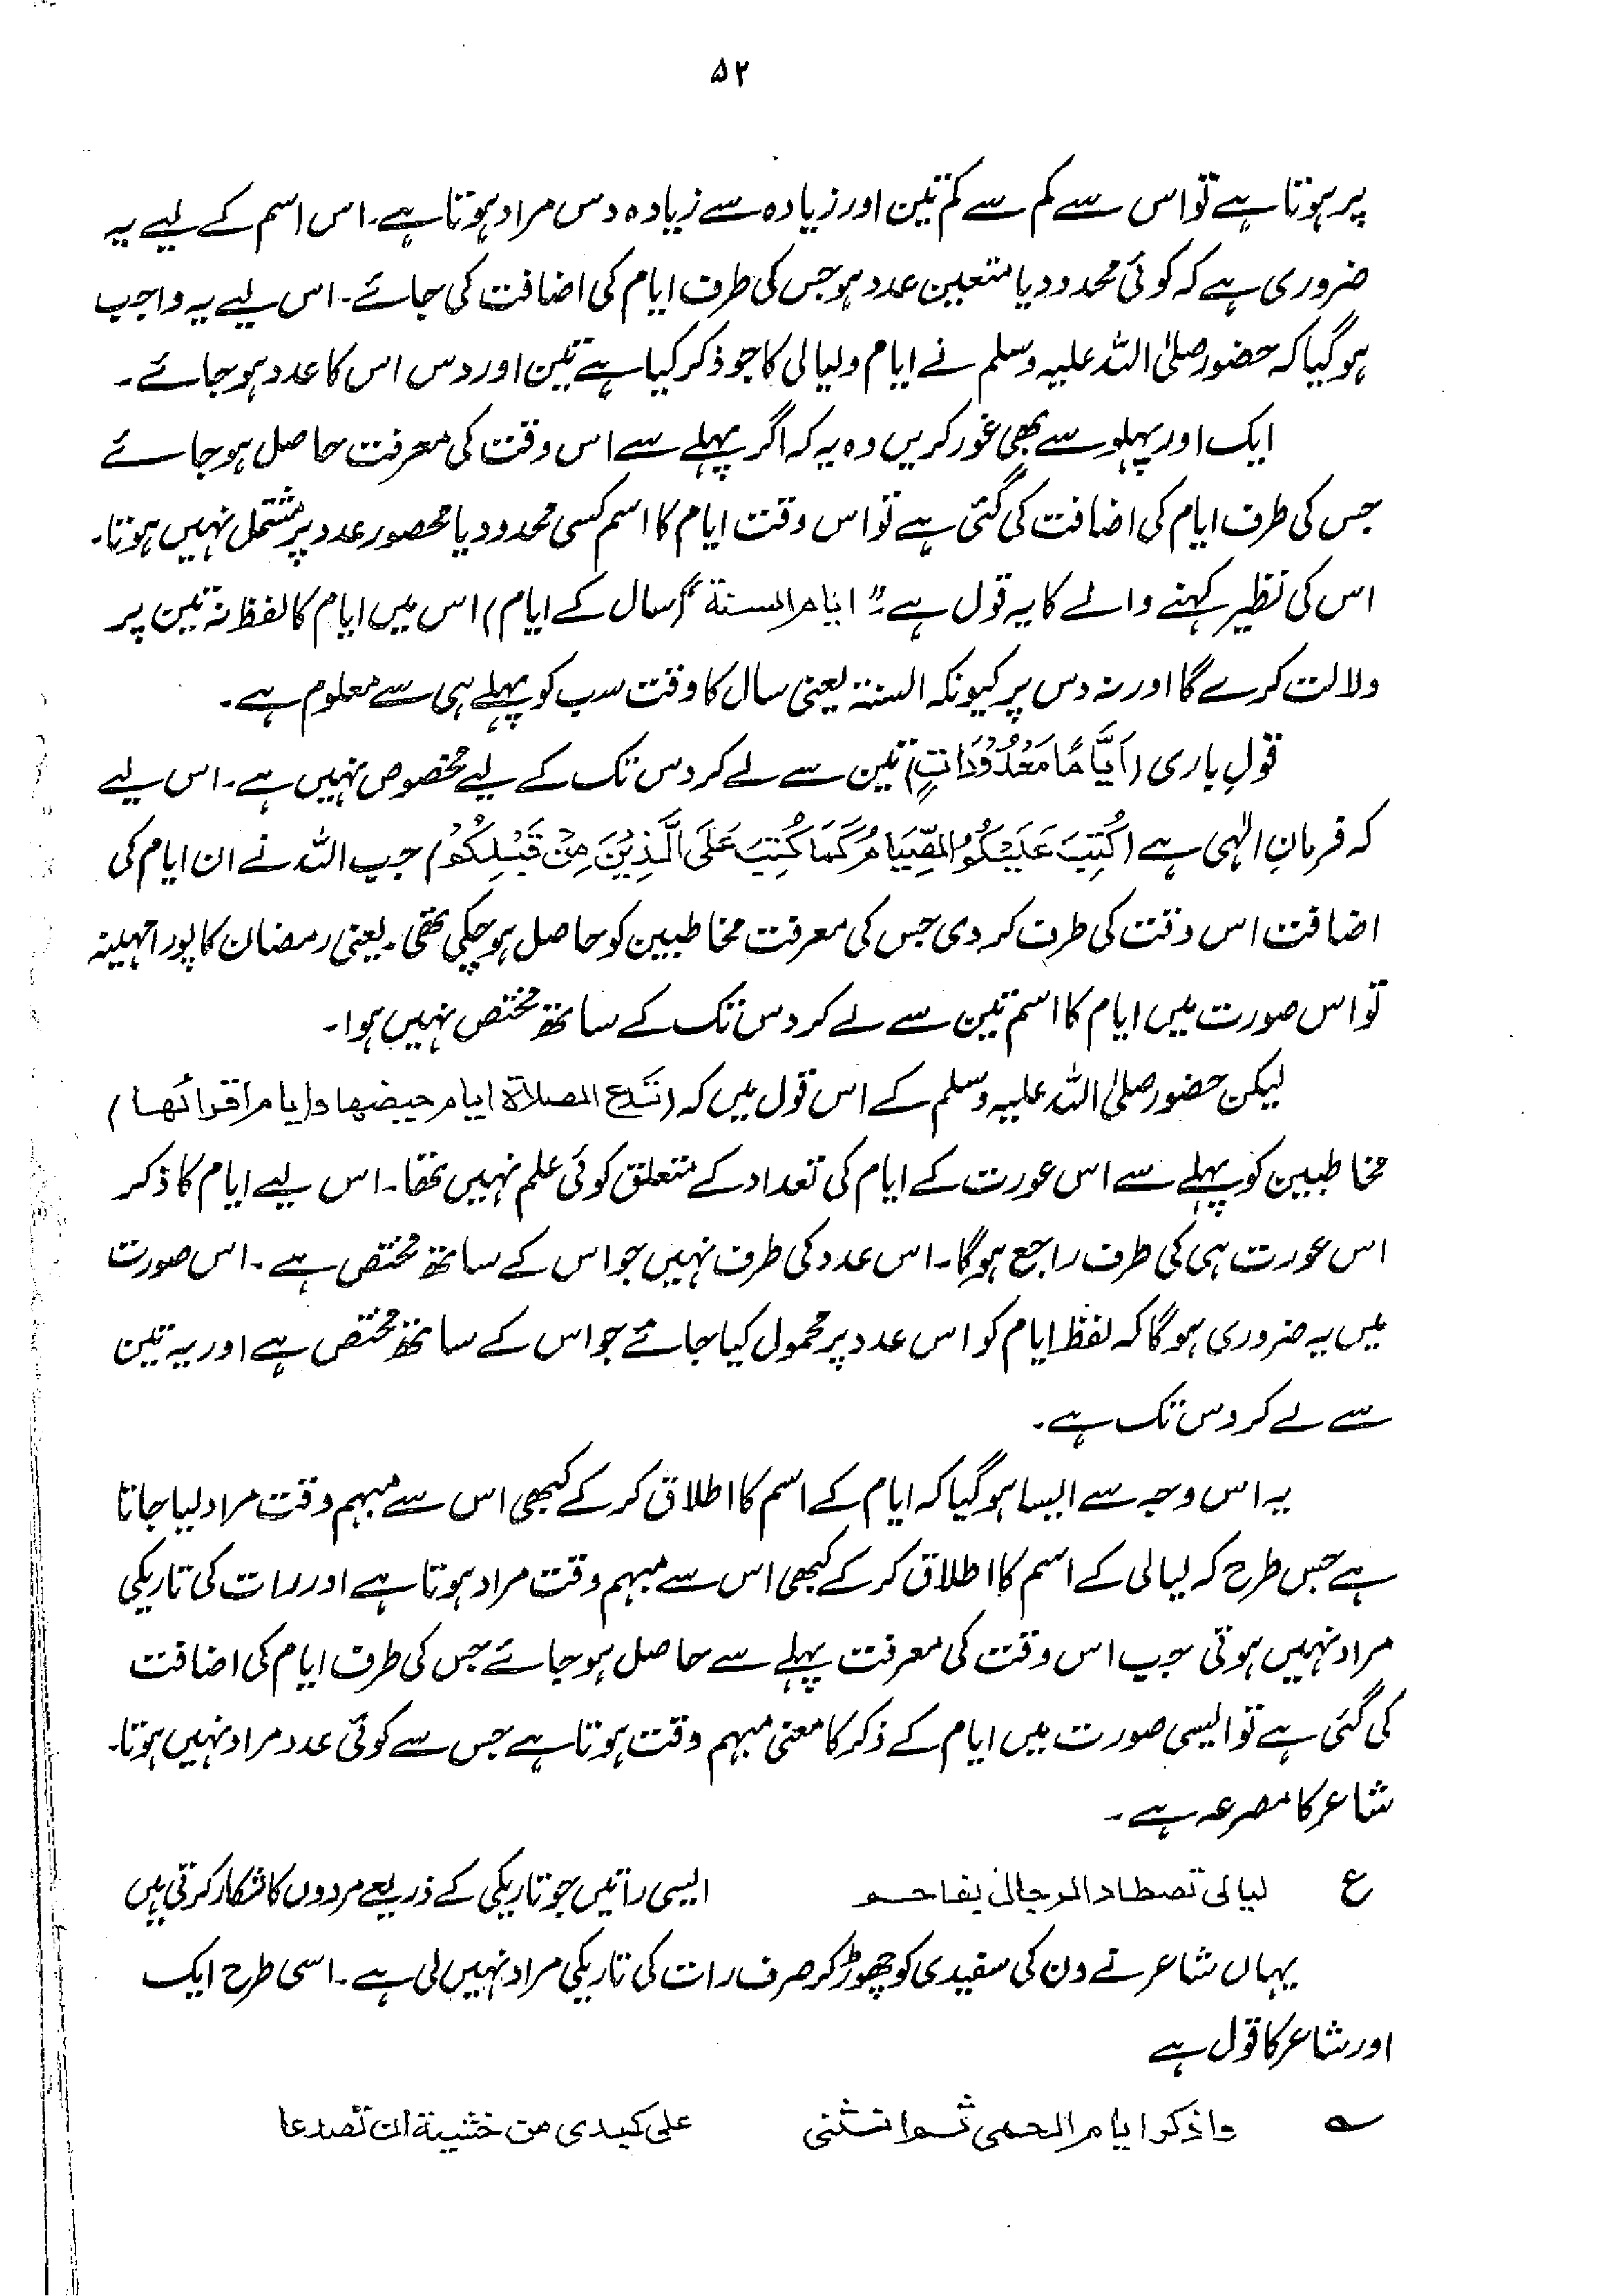 ۵۲
پر ہوتا ہے تو اس سے کم سے کم تین اور زیادہ سے زیادہ دس مراد ہوتا ہے۔ اس اسم کے لیے یہ
ضروری ہے کہ کوئی محدود یا متعین عدد ہو جس کی طرف ایام کی اضافت کی جائے۔ اس لیے یہ واجب
ہوگیا کہ حضور صلی اللہ علیہ وسلم نے ایام ولیالی کا جو ذکر کیا ہے تین اور دس اس کا عدد ہو جائے۔
ایک اور پہلو سے بھی غور کریں وہ یہ کہ اگر پہلے سے اس وقت کی معرفت حاصل ہو جائے
جس کی طرف ایام کی اضافت کی گئی ہے تو اس وقت ایام کا اسم کسی محدود یا محصور عدد پر مشتمل نہیں ہوتا۔
اس کی نظیر کہنے والے کا یہ قول ہے :" ایام السنة "(سال کے ایام) اس میں ایام کا لفظ نہ تین پر
دلالت کرے گا اور نہ دس پر کیونکہ السنۃ یعنی سال کا وقت سب کو پہلے ہی سے معلوم ہے۔
قولِ باری (اَيَّامًا مَعْدُوْدَاتٍ) تین سے لے کر دس تک کے لیے مخصوص نہیں ہے۔ اس لیے
کہ فرمانِ الٰہی ہے (كُتِبَ عَلَيْكُمُ الصِّيَامُ كَمَا كُتِبَ عَلَى الَّذِيْنَ مِنْ قَبْلِكُمْ) جب اللہ نے ان ایام کی
اضافت اس وقت کی طرف کر دی جس کی معرفت مخاطبین کو حاصل ہو چکی تھی۔ یعنی رمضان کا پورا مہینہ
تو اس صورت میں ایام کا اسم تین سے لے کر دس تک کے ساتھ مختص نہیں ہوا۔
لیکن حضور صلی اللہ علیہ وسلم کے اس قول میں کہ (تدع الصلاة ايام حيضها وايام اقرائها)
مخاطبین کو پہلے سے اس عورت کے ایام کی تعداد کے متعلق کوئی علم نہیں تھا۔ اس لیے ایام کا ذکر
اس عورت ہی کی طرف راجع ہوگا۔ اس عدد کی طرف نہیں جو اس کے ساتھ مختص ہے۔ اس صورت
میں یہ ضروری ہوگا کہ لفظ ایام کو اس عدد پر محمول کیا جائے جو اس کے ساتھ مختص ہے اور یہ تین
سے لے کر دس تک ہے۔
یہ اس وجہ سے ایسا ہوگیا کہ ایام کے اسم کا اطلاق کر کے کبھی اس سے مبہم وقت مراد لیا جاتا
ہے جس طرح کہ لیالی کے اسم کا اطلاق کر کے کبھی اس سے مبہم وقت مراد ہوتا ہے اور رات کی تاریکی
مراد نہیں ہوتی جب اس وقت کی معرفت پہلے سے حاصل ہو جائے جس کی طرف ایام کی اضافت
کی گئی ہے تو ایسی صورت میں ایام کے ذکر کا معنی مبہم وقت ہوتا ہے جس سے کوئی عدد مراد نہیں ہوتا۔
شاعر کا مصرعہ ہے۔
ع لیالی تصطاد الرجال بفاحم ایسی راتیں جو تاریکی کے ذریعے مردوں کا شکار کرتی ہیں
یہاں شاعر نے دن کی سفیدی کو چھوڑ کر صرف رات کی تاریکی مراد نہیں لی ہے۔ اسی طرح ایک
اور شاعر کا قول ہے
؎ واذکر ایام الحمی ثم انثنی علی کبدی من خشیة ان تصدعا